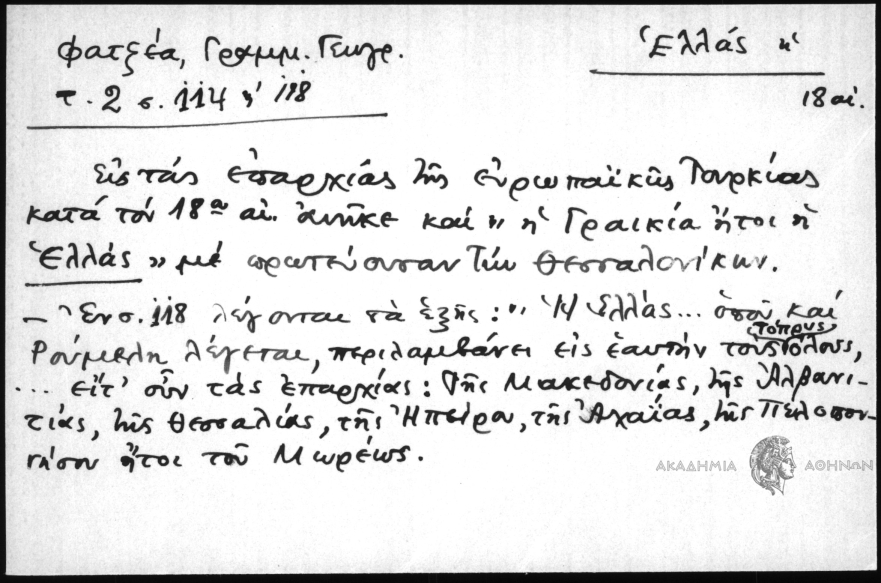 Φατζέα, Γραμμ. Γεωγρ.
τ. 2 σ. 114 & 118
Ἑλλάς ἡ
18 αἰ.
Εἰς τάς ἐπαρχίας τῆς εὐρωπαϊκῆς Τουρκίας
κατά τόν 18ον αἰ. ἀνῆκε καί „ ἡ Γραικία ἤτοι ἡ
Ἑλλάς „ μέ πρωτεύουσαν τήν Θεσσαλονίκην.
— Ἐν σ. 118 λέγονται τά ἑξῆς: „ Ἡ Ἑλλάς... ὁποῦ καί
Ρούμελη λέγεται, περιλαμβάνει εἰς ἑαυτήν τούς τόπους ὅλους,
... εἴτ' οὖν τάς ἐπαρχίας: Τῆς Μακεδονίας, τῆς Ἀλβανι-
τίας, τῆς Θεσσαλίας, τῆς Ἠπείρου, τῆς Ἀχαΐας, τῆς Πελοπον-
νήσου ἤτοι τοῦ Μωρέως.
ΑΚΑΔΗΜΙΑ ΑΘΗΝΩΝ